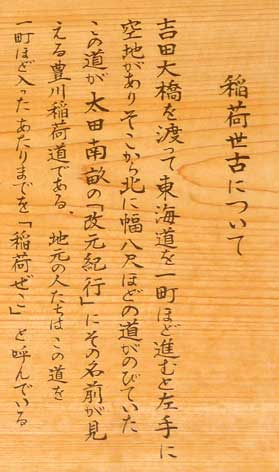 稲荷世古について
吉田大橋を渡って東海道を一町ほど進むと左手に
空地がありそこから北に幅八尺ほどの道がのびていた
この道が太田南畝の「改元紀行」にその名前が見
える豊川稲荷道である 地元の人たちはこの道を
一町ほど入ったあたりまでを「稲荷ぜこ」と呼んでいる